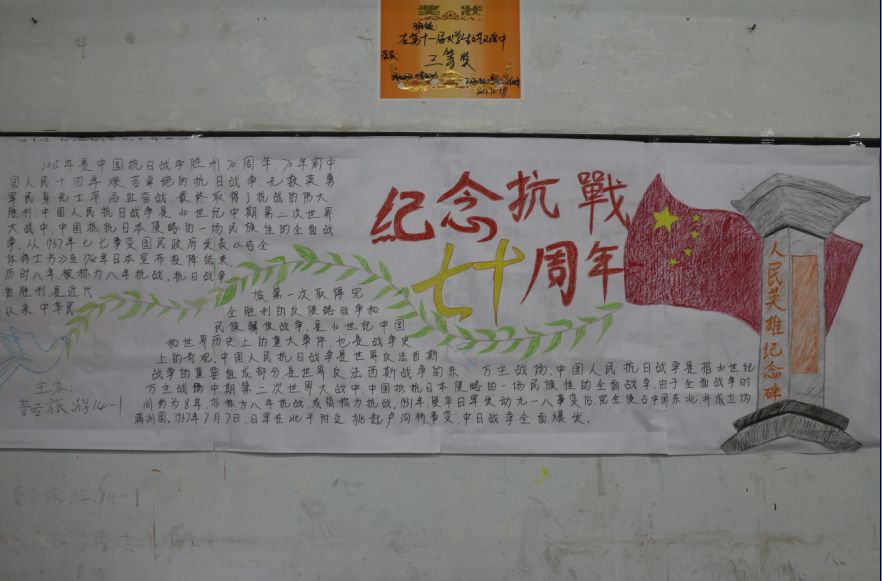 奖状
三等奖
2015年是中国抗日战争胜利70周年 70年前中
国人民十四年艰苦卓绝的抗日战争,无数英勇
军民身先士卒浴血奋战,最终取得了抗战的伟大
胜利,中国人民抗日战争是20世纪中期第二次世界
大战中,中国抵抗日本侵略的一场民族性的全面战
争,从1937年七七事变国民政府发表《告全
体将士书》至1945年日本宣布投降结束,
历时八年,被称为八年抗战。抗日战争
的胜利,是近代
以来中华民
族第一次取得完
全胜利的反侵略战争和
民族解放战争,是20世纪中国
和世界历史上的重大事件,也是战争史
上的奇观,中国人民抗日战争是世界反法西斯
战争的重要组成部分是世界反法西斯战争的东 方主战场,中国人民抗日战争是指20世纪
方主战场中期第二次世界大战中,中国抵抗日本侵略的一场民族性的全面战争,由于全面战争时
间约为8年,亦称为八年抗战,或简称为抗战。1931年,侵华日军发动九一八事变后,完全侵占中国东北,并成立伪
满洲国。1937年7月7日,日军在北平附近挑起卢沟桥事变,中日战争全面爆发。
纪念抗戰
七十周年
人民英雄纪念碑
旅游14-1
旅游14-1